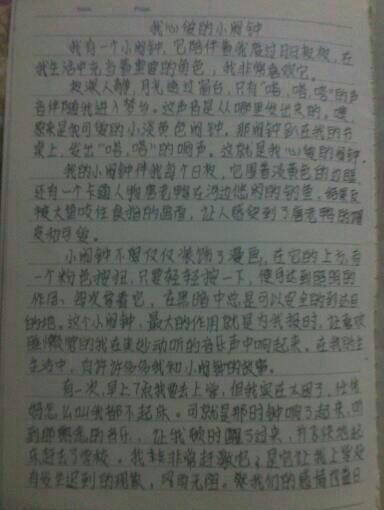 我心爱的小闹钟
我有一个小闹钟，它陪伴着我度过日日夜夜，在
我生活中充当着重要的角色，我非常喜欢它。
夜深人静，月光透过窗台，只有“嗒，嗒，嗒”的声
音伴随我进入梦乡。这声音是从哪里发出来的，噢，
原来是我可爱的小淡黄色闹钟，那闹钟趴在我的书
桌上，发出“嗒，嗒”的响声。这就是我心爱的闹钟。
我的小闹钟伴我每个日夜，它围着淡黄色的边框，
还有一个卡通人物唐老鸭在河边悠闲的钓鱼，结果反
被大螃咬住良拍的画着，让人感受到了唐老鸭的
和可爱。
小闹钟不单仅仅装饰了漫画，在它的上方有
一个粉色按钮，只要轻轻按一下，便可达到照明的
作用。每次拿着它，在黑暗中总是可以安全的到达目
的地。这个小闹钟，最大的作用就是为我报时，让喜欢
睡懒觉的我在美妙动听的音乐声中响起来。在我的生
生活中，有许许多多我和小闹钟的故事。
有一次，早上7点我要去上学，但我实在太困了，任凭
妈怎么叫我都不起床。可就是那时钟响了起来，听
到那熟悉的音乐，让我顿时醒了过来，并高快地起
床赶去了学校。我非常非常感谢它，是它让我上学没
有发生迟到的现象，